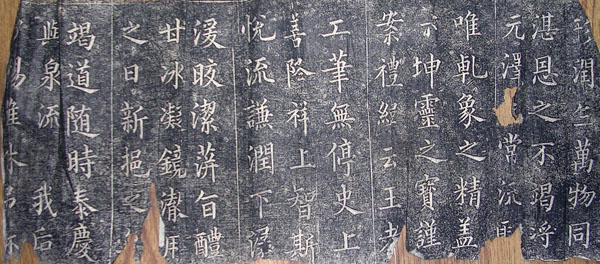 形潤生萬物同
湛恩之不竭將
元澤常流
唯乾象之精蓋
亦坤靈之寶謹
案禮緯云王者
工筆無停史上
善降祥上智斯
悅流謙潤下潺
湲皎潔蓱旨醴
甘冰凝鏡澈用
之日新挹之
竭道随時泰慶
與泉流我后
惕雖休弗休